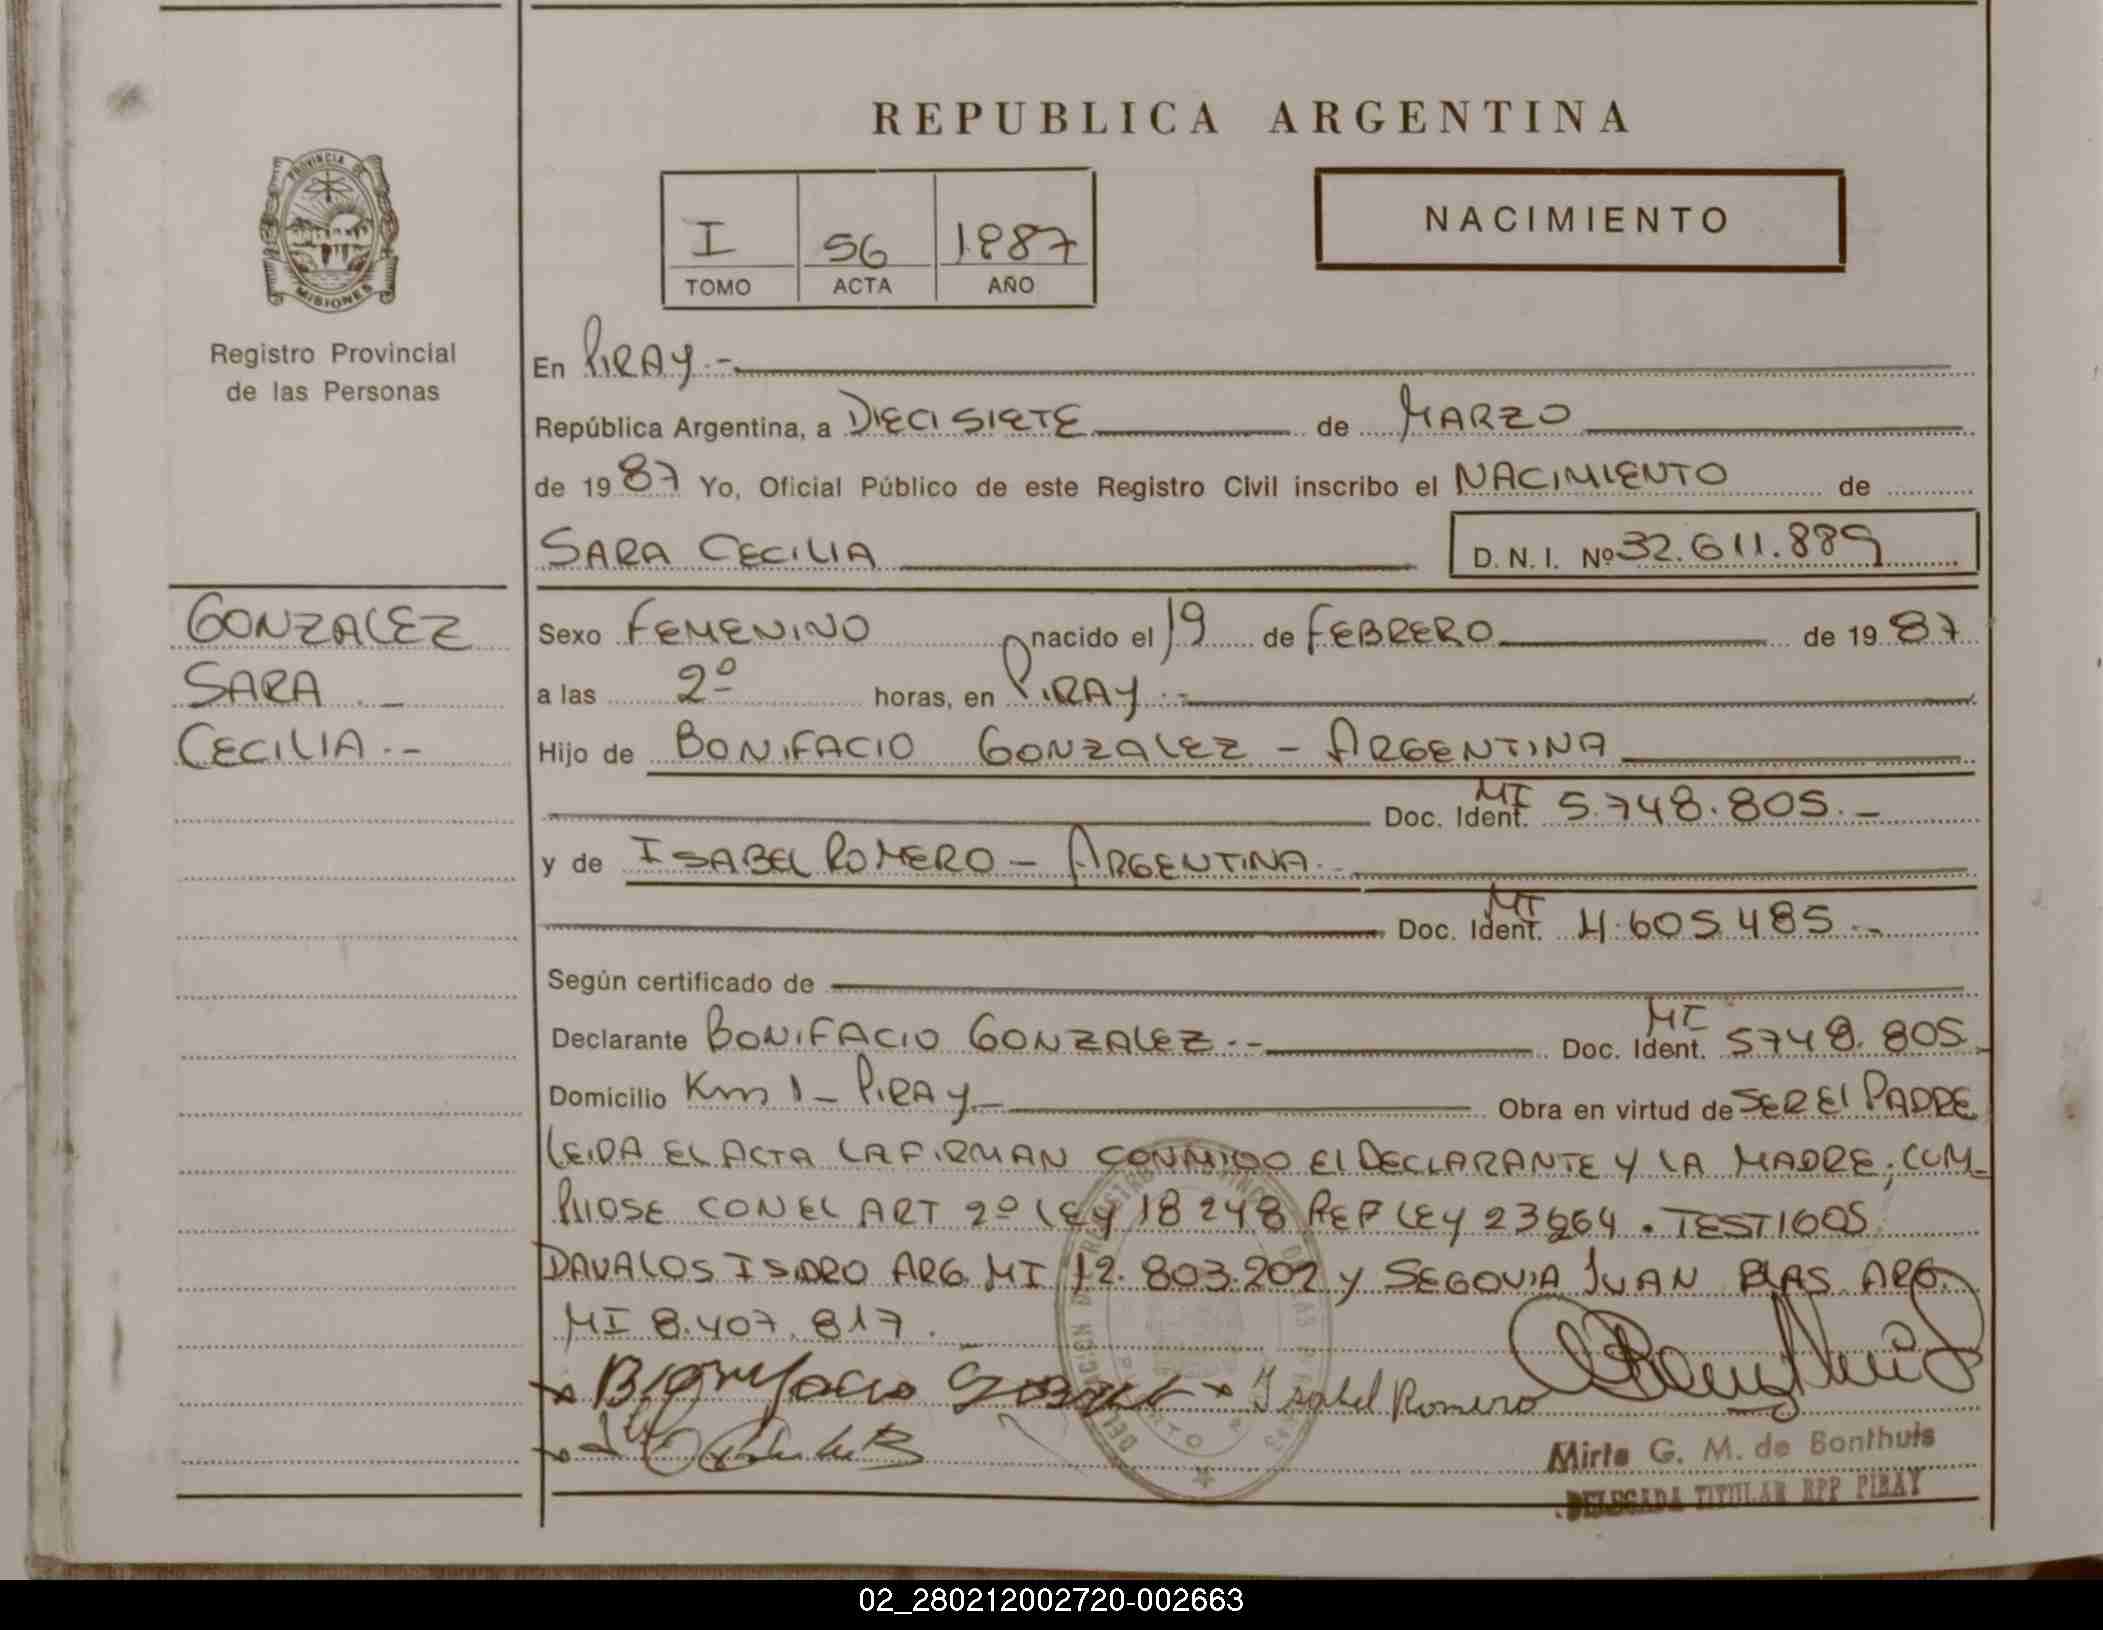 REPUBLICA ARGENTINA
PROVINCIA DE
MISIONES
Registro Provincial
de las Personas
I 56 1987
TOMO ACTA AÑO
NACIMIENTO
En PIRAY.-
República Argentina, a DIECISIETE de MARZO
de 1987 Yo, Oficial Público de este Registro Civil inscribo el NACIMIENTO de
SARA CECILIA D. N. I. Nº 32.611.889
GONZALEZ
SARA _
CECILIA.-
Sexo FEMENINO nacido el 19 de FEBRERO de 1987
a las 2º horas, en PIRAY.-
Hijo de BONIFACIO GONZALEZ - ARGENTINA
Doc. Ident. MI 5.748.805.-
y de ISABEL ROMERO - ARGENTINA.-
Doc. Ident. MI 4.605485.-
Según certificado de
Declarante BONIFACIO GONZALEZ.- Doc. Ident. MI 5748.805.
Domicilio Km 1 - PIRAY- Obra en virtud de SER El PADRE
LEIDA EL ACTA LA FIRMAN CONMIGO El DECLARANTE Y LA MADRE, CUM-
PlIOSE CON EL ART 2º LEY 18248 REF LEY 23264. TESTIGOS
DAVALOS ISIDRO ARG. MI 12.803.202 y SEGOVIA JUAN BLAS ARG.
MI 8.407.817.
x Bonifacio x Isabel Romero
Mirta G. M. de Bonthuis
DELEGADA TITULAR RPP PIRAY
02_280212002720-002663